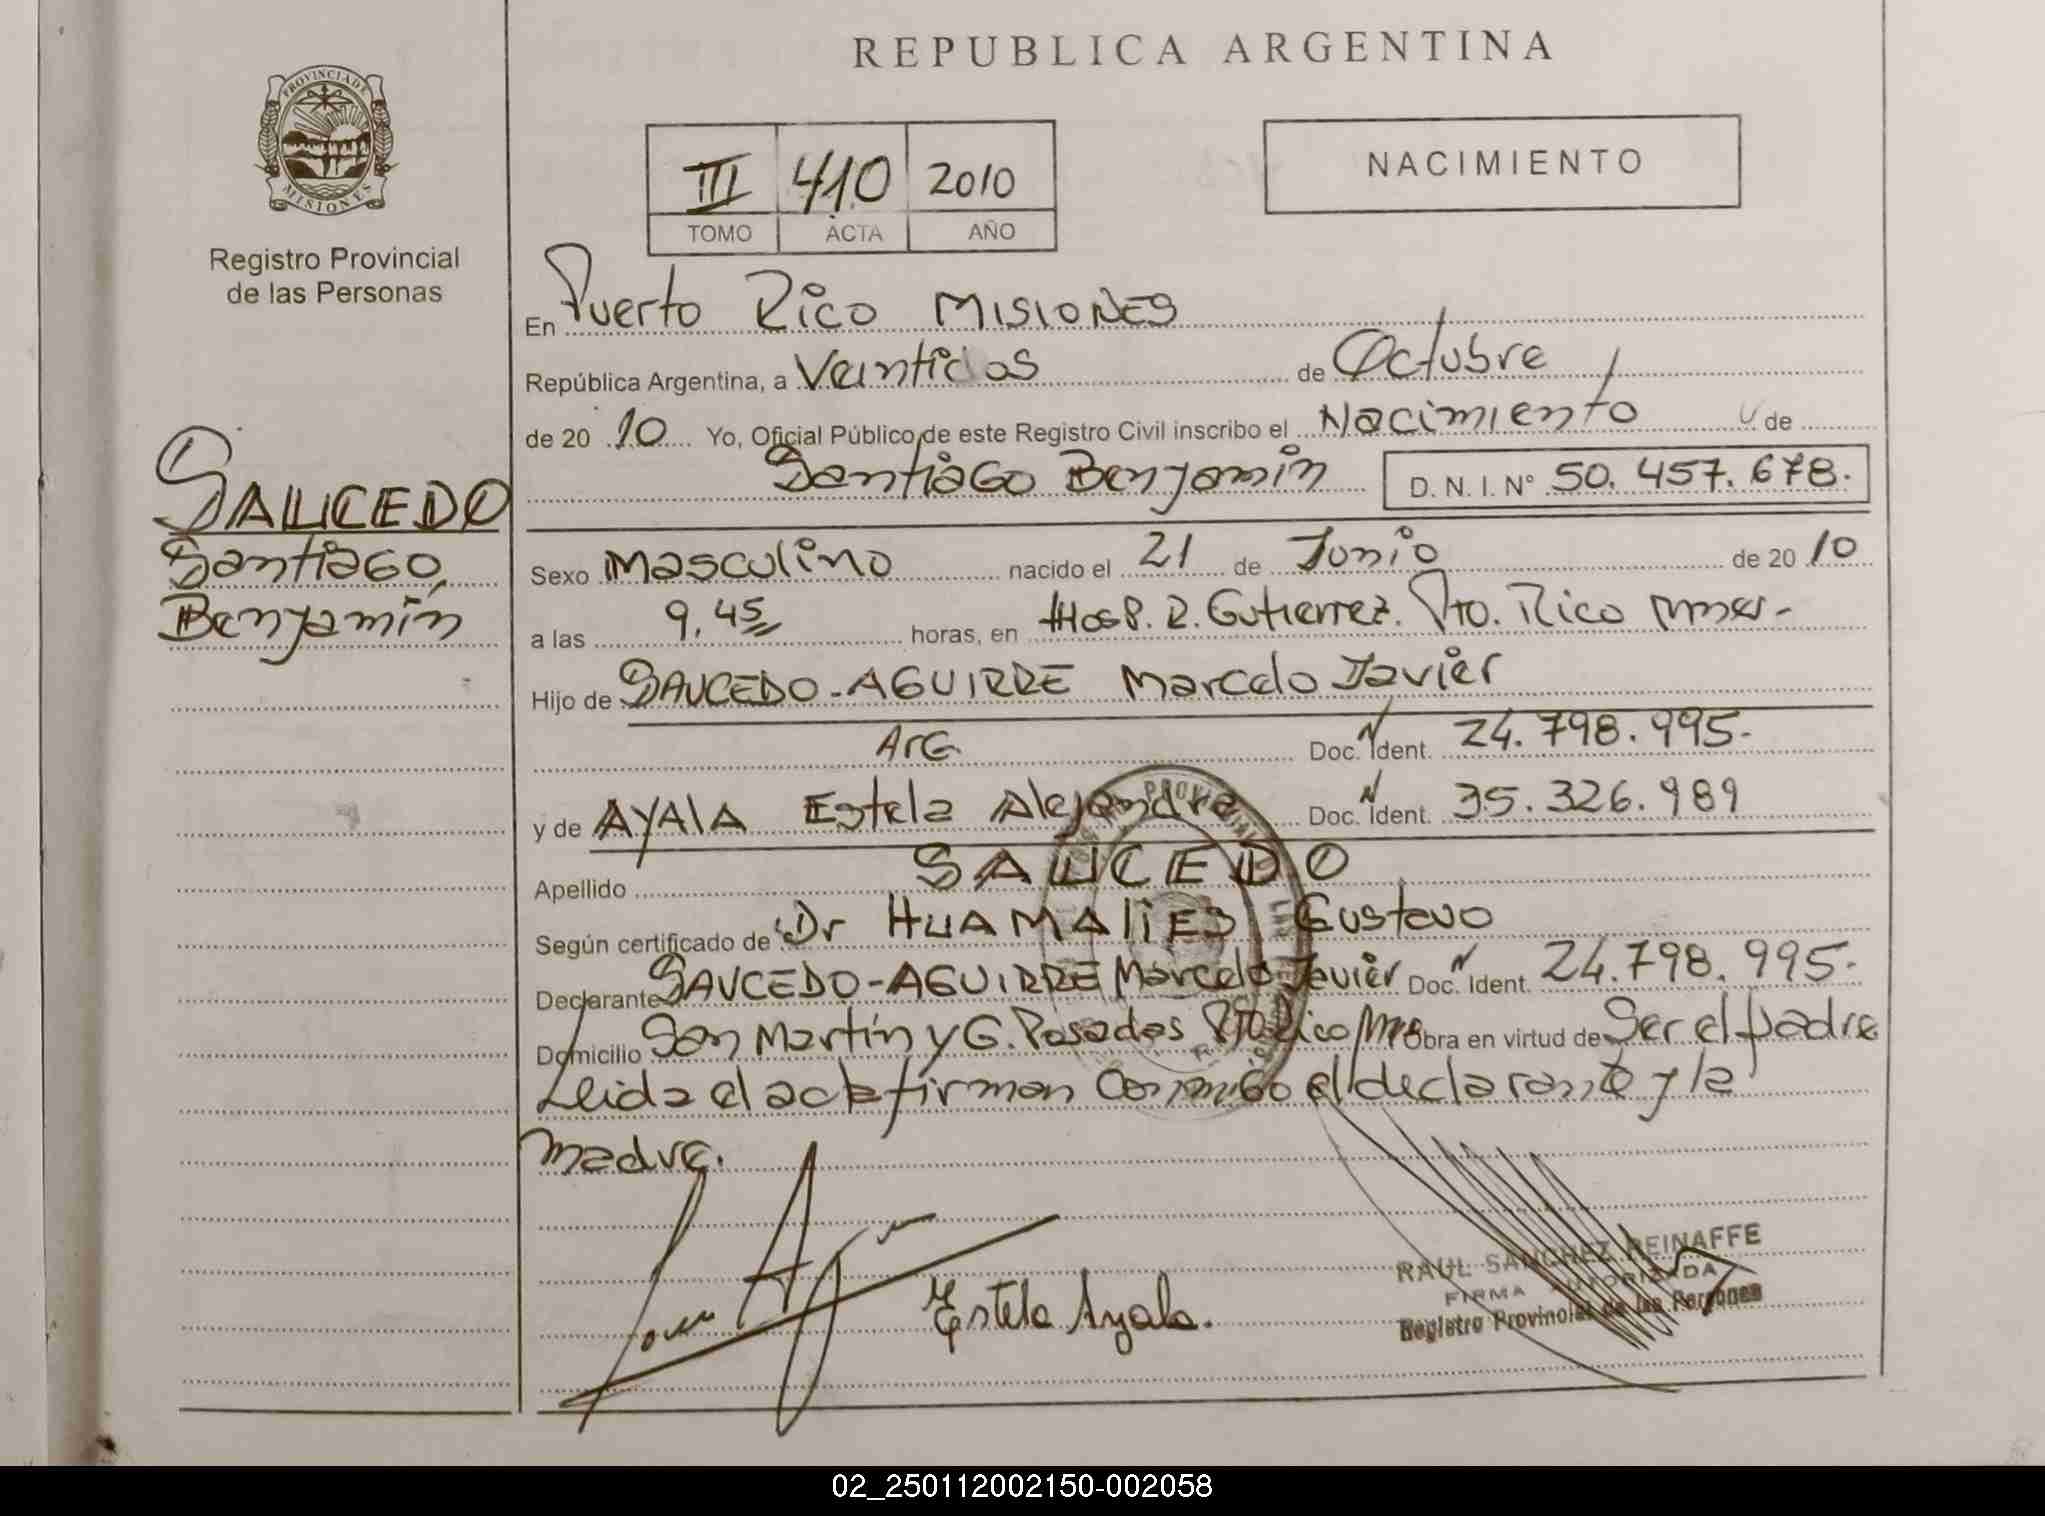 REPUBLICA ARGENTINA
PROVINCIA DE
MISIONES
Registro Provincial
de las Personas
III 410 2010
TOMO ACTA AÑO
NACIMIENTO
En Puerto Rico MISIONES
República Argentina, a Veintidos de Octubre
de 20 10 Yo, Oficial Público de este Registro Civil inscribo el Nacimiento de
Santiago Benjamin D. N. I. N° 50.457.678.
SAUCEDO
Santiago
Benjamín
Sexo Masculino nacido el 21 de Junio de 20 10
a las 9,45 horas, en Hosp. R. Gutierrez. Pto. Rico
Hijo de SAUCEDO-AGUIRRE Marcelo Javier
Arg. Doc. Ident. 24.798.995.
y de AYALA Estela Alejandra Doc. Ident. 35.326.989
Apellido SAUCEDO
Según certificado de Dr HUAMALIES Gustavo
Declarante SAUCEDO-AGUIRRE Marcelo Javier Doc. Ident. 24.798.995.
Domicilio San Martín y G. Posadas Pto Rico Mnes Obra en virtud de Ser el padre
Leida el acta firman conmigo el declarante y la
madre.
Estela Ayala.
RAUL SANCHEZ REINAFFE
FIRMA AUTORIZADA
Registro Provincial de las Personas
02_250112002150-002058